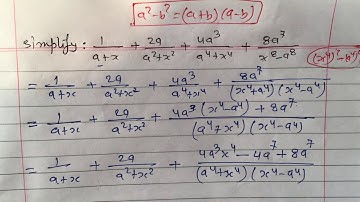 a²-b²=(a+b)(a-b)
Simplify: 1/(a+x) + 2a/(a²+x²) + 4a³/(a⁴+x⁴) + 8a⁷/(x⁸-a⁸)
(x⁴)²-(a⁴)²
= 1/(a+x) + 2a/(a²+x²) + 4a³/(a⁴+x⁴) + 8a⁷/((x⁴+a⁴)(x⁴-a⁴))
= 1/(a+x) + 2a/(a²+x²) + (4a³(x⁴-a⁴)+8a⁷)/((a⁴+x⁴)(x⁴-a⁴))
= 1/(a+x) + 2a/(a²+x²) + (4a³x⁴-4a⁷+8a⁷)/((a⁴+x⁴)(x⁴-a⁴))